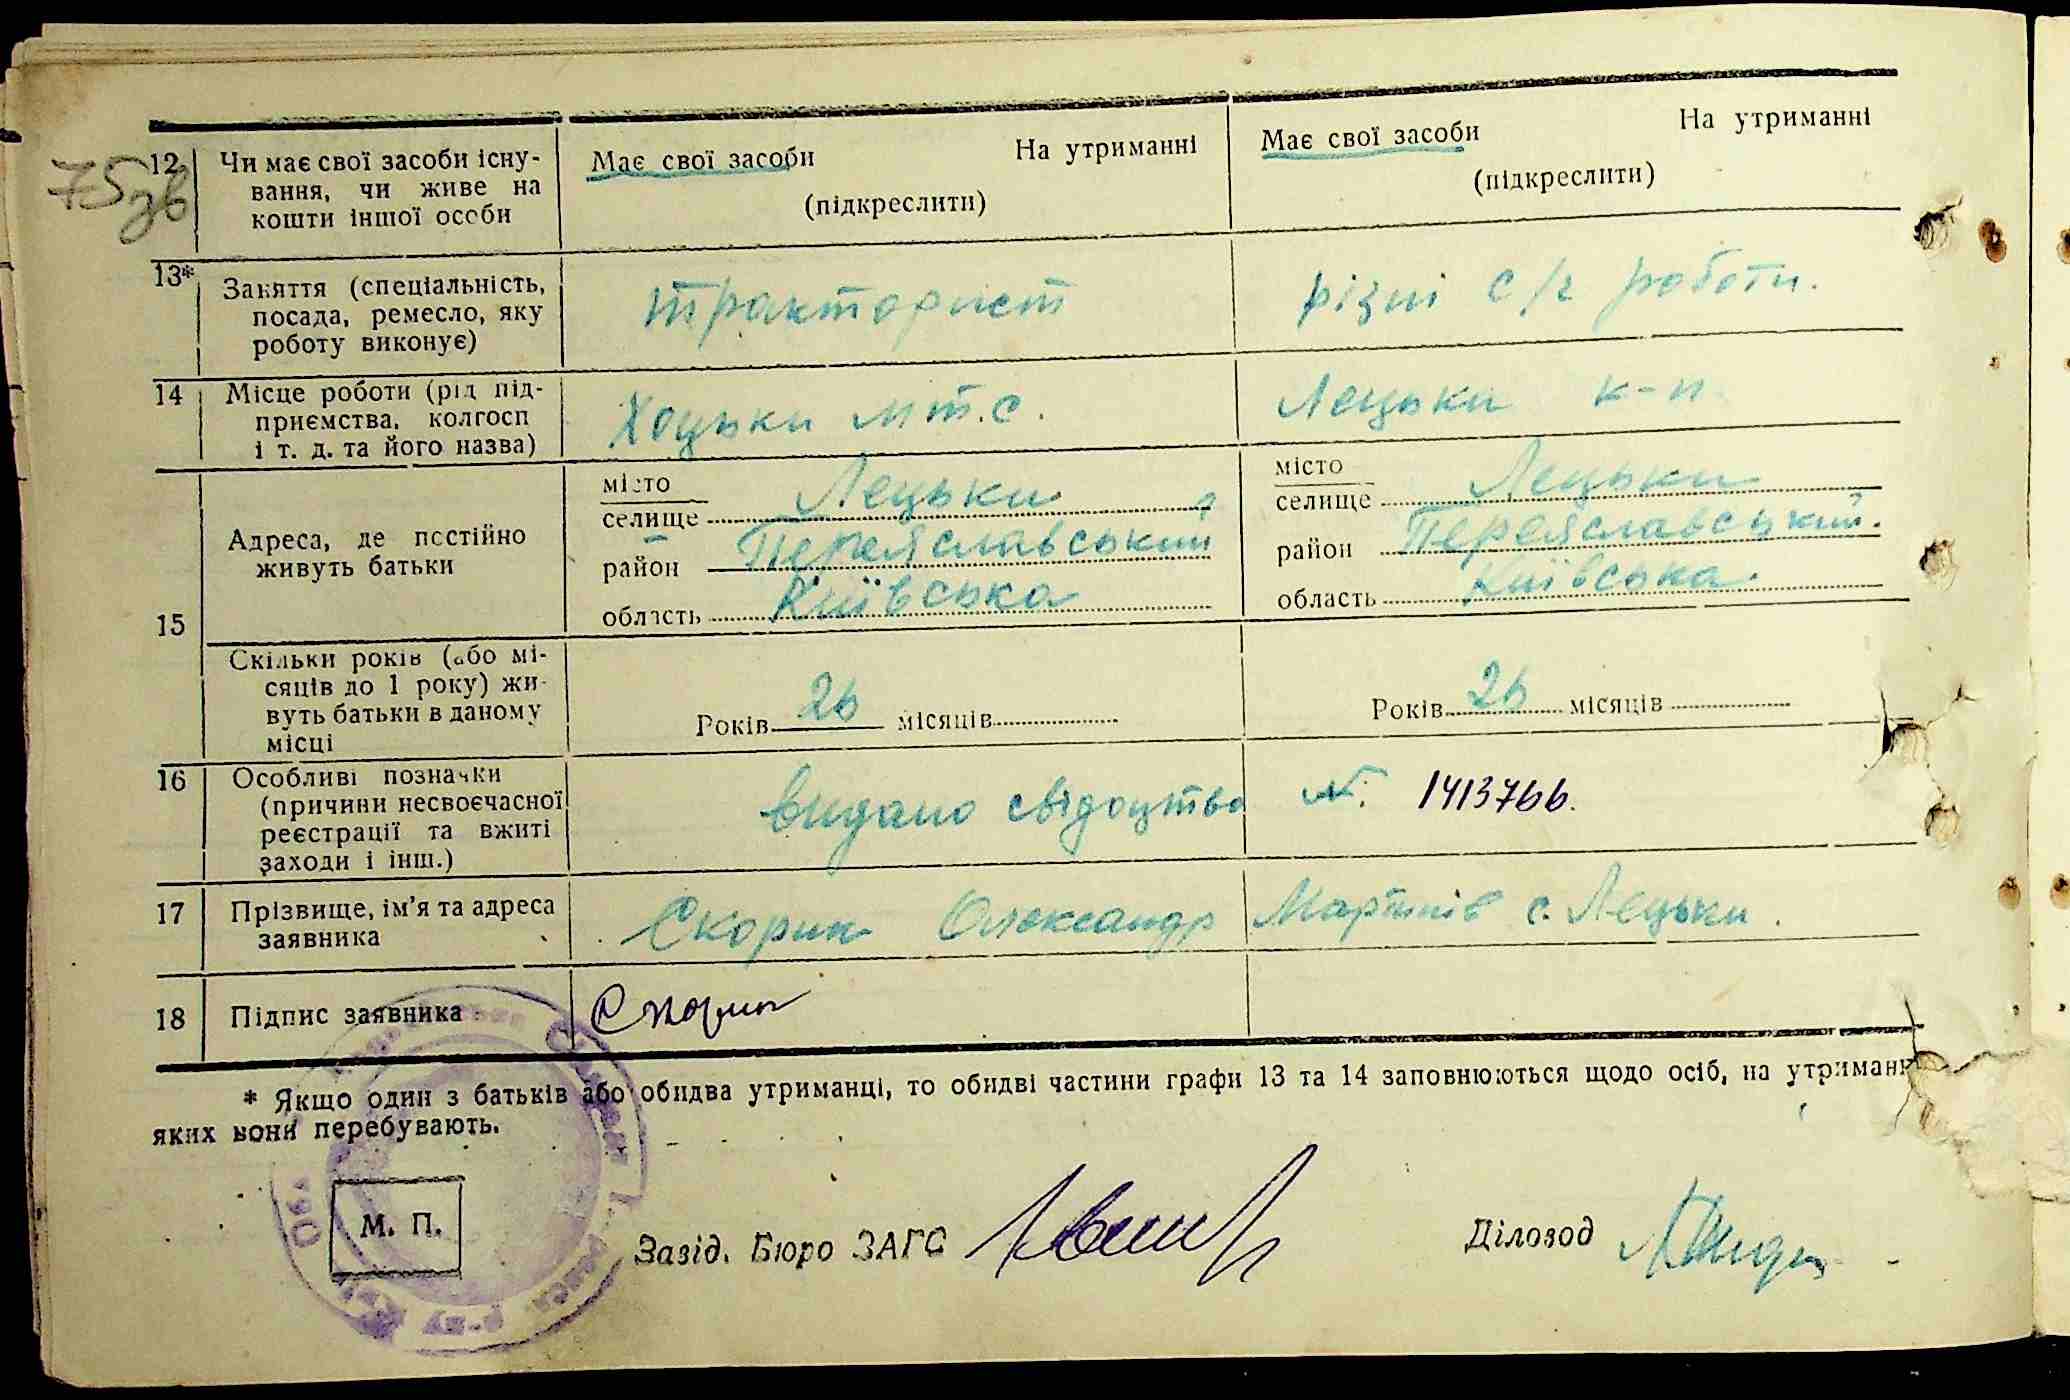 75зв
12 Чи має свої засоби існу- Має свої засоби На утриманні Має свої засоби На утриманні
вання, чи живе на (підкреслити) (підкреслити)
кошти іншої особи
13* Заняття (спеціальність, тракторист різні с/г роботи.
посада, ремесло, яку
роботу виконує)
14 Місце роботи (рід під- Хоцьки мт.с. Лецьки к-п
приємства, колгосп
і т. д. та його назва)
15 Адреса, де постійно
живуть батьки
місто
селище Лецьки
район Переяславський
область Київська
місто
селище Лецьки
район Переяславський.
область Київська.
Скільки років (або мі-
сяців до 1 року) жи-
вуть батьки в даному
місці
Років 26 місяців
Років 26 місяців
16 Особливі позначки видано свідоцтво №. 1413766.
(причини несвоєчасної
реєстрації та вжиті
заходи і інш.)
17 Прізвище, ім'я та адреса Скорик Олександр Мартинів с. Лецьки.
заявника
18 Підпис заявника Скорик
* Якщо один з батьків або обидва утриманці, то обидві частини графи 13 та 14 заповнюються щодо осіб, на утриманні
яких вони перебувають.
М. П.
Завід. Бюро ЗАГС
Діловод